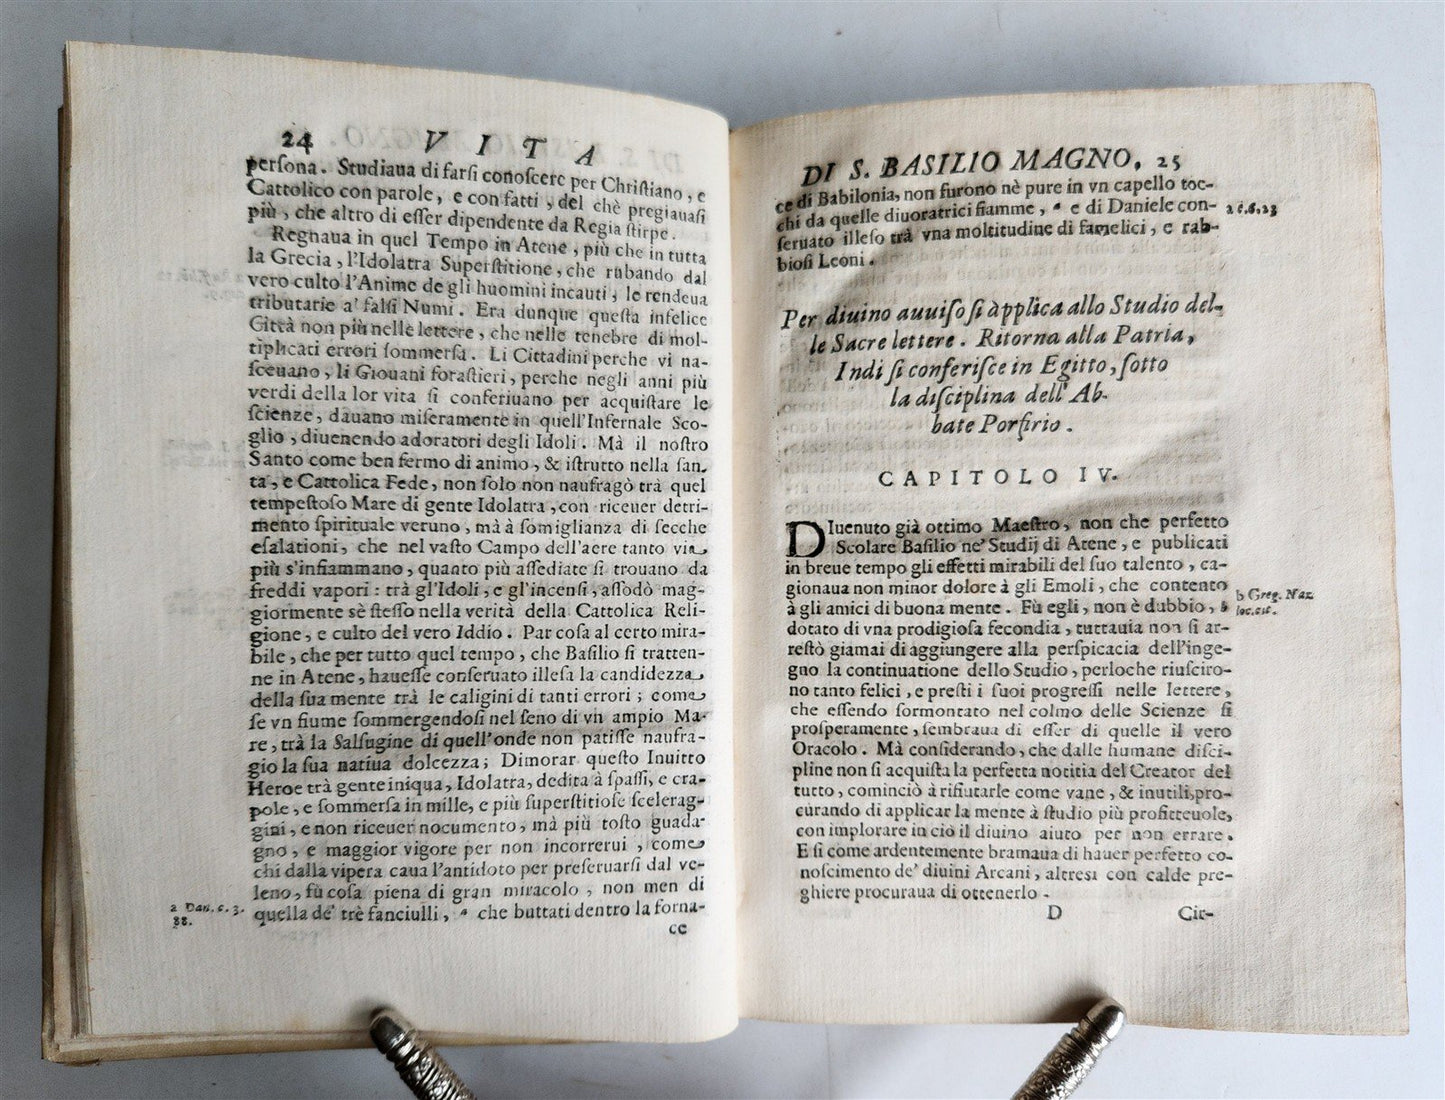 24 VITA
perſona. Studiaua di farſi conoſcere per Chriſtiano, e
Cattolico con parole, e con fatti, del chè pregiauaſi
più, che altro di eſſer dipendente da Regia ſtirpe.
Regnaua in quel Tempo in Atene, più che in tutta
la Grecia, l'Idolatra Superſtitione, che rubando dal
vero culto l'Anime de gli huomini incauti, le rendeua
tributarie a' falſi Numi. Era dunque queſta infelice
Città non più nelle lettere, che nelle tenebre di mol-
tiplicati errori ſommerſa. Li Cittadini perche vi na-
ſceuano, li Giouani foraſtieri, perche negli anni più
verdi della lor vita ſi conferiuano per acquiſtare le
ſcienze, dauano miſeramente in quell'Infernale Sco-
glio, diuenendo adoratori degli Idoli. Mà il noſtro
Santo come ben fermo di animo, & iſtrutto nella ſan-
ta, e Cattolica Fede, non ſolo non naufragò trà quel
tempeſtoſo Mare di gente Idolatra, con riceuer detri-
mento ſpirituale veruno, mà à ſomiglianza di ſecche
eſalationi, che nel vaſto Campo dell'aere tanto via
più s'infiammano, quanto più aſſediate ſi trouano da
freddi vapori: trà gl'Idoli, e gl'incenſi, aſſodò mag-
giormente sè ſteſſo nella verità della Cattolica Reli-
gione, e culto del vero Iddio. Par coſa al certo mira-
bile, che per tutto quel tempo, che Baſilio ſi tratten-
ne in Atene, haueſſe conſeruato illeſa la candidezza
della ſua mente trà le caligini di tanti errori; come
ſe vn fiume ſommergendoſi nel ſeno di vn ampio Ma-
re, trà la Salſugine di quell'onde non patiſſe naufra-
gio la ſua natiua dolcezza; Dimorar queſto Inuitto
Heroe trà gente iniqua, Idolatra, dedita à ſpaſſi, e cra-
pole, e ſommerſa in mille, e più ſuperſtitioſe ſcelerag-
gini, e non riceuer nocumento, mà più toſto guada-
gno, e maggior vigore per non incorrerui, come
chi dalla vipera caua l'antidoto per preſeruarſi dal ve-
leno, fù coſa piena di gran miracolo, non men di
quella de' trè fanciulli, a che buttati dentro la forna-
ce
a Dan. c. 3.
88.
DI S. BASILIO MAGNO. 25
ce di Babilonia, non furono nè pure in vn capello toc-
chi da quelle diuoratrici fiamme, a e di Daniele con-
ſeruato illeſo trà vna moltitudine di famelici, e rab-
bioſi Leoni.
a c. 6. 23
Per diuino auuiſo ſi àpplica allo Studio del-
le Sacre lettere. Ritorna alla Patria,
Indi ſi conferiſce in Egitto, ſotto
la diſciplina dell' Ab-
bate Porfirio.
CAPITOLO IV.
DIuenuto già ottimo Maeſtro, non che perfetto
Scolare Baſilio ne' Studij di Atene, e publicati
in breue tempo gli effetti mirabili del ſuo talento, ca-
gionaua non minor dolore à gli Emoli, che contento
à gli amici di buona mente. Fù egli, non è dubbio, b
dotato di vna prodigioſa fecondia, tuttauia non ſi ar-
reſtò giamai di aggiungere alla perſpicacia dell'inge-
gno la continuatione dello Studio, perloche riuſciro-
no tanto felici, e preſti i ſuoi progreſſi nelle lettere,
che eſſendo formontato nel colmo delle Scienze ſi
proſperamente, ſembraua di eſſer di quelle il vero
Oracolo. Mà conſiderando, che dalle humane diſci-
pline non ſi acquiſta la perfetta notitia del Creator del
tutto, cominciò à rifiutarle come vane, & inutili, pro-
curando di applicar la mente à ſtudio più profitteuole,
con implorare in ciò il diuino aiuto per non errare.
E ſi come ardentemente bramaua di hauer perfetto co-
noſcimento de' diuini Arcani, altresì con calde pre-
ghiere procuraua di ottenerlo.
b Greg. Naz.
loc. cit.
D Cir-